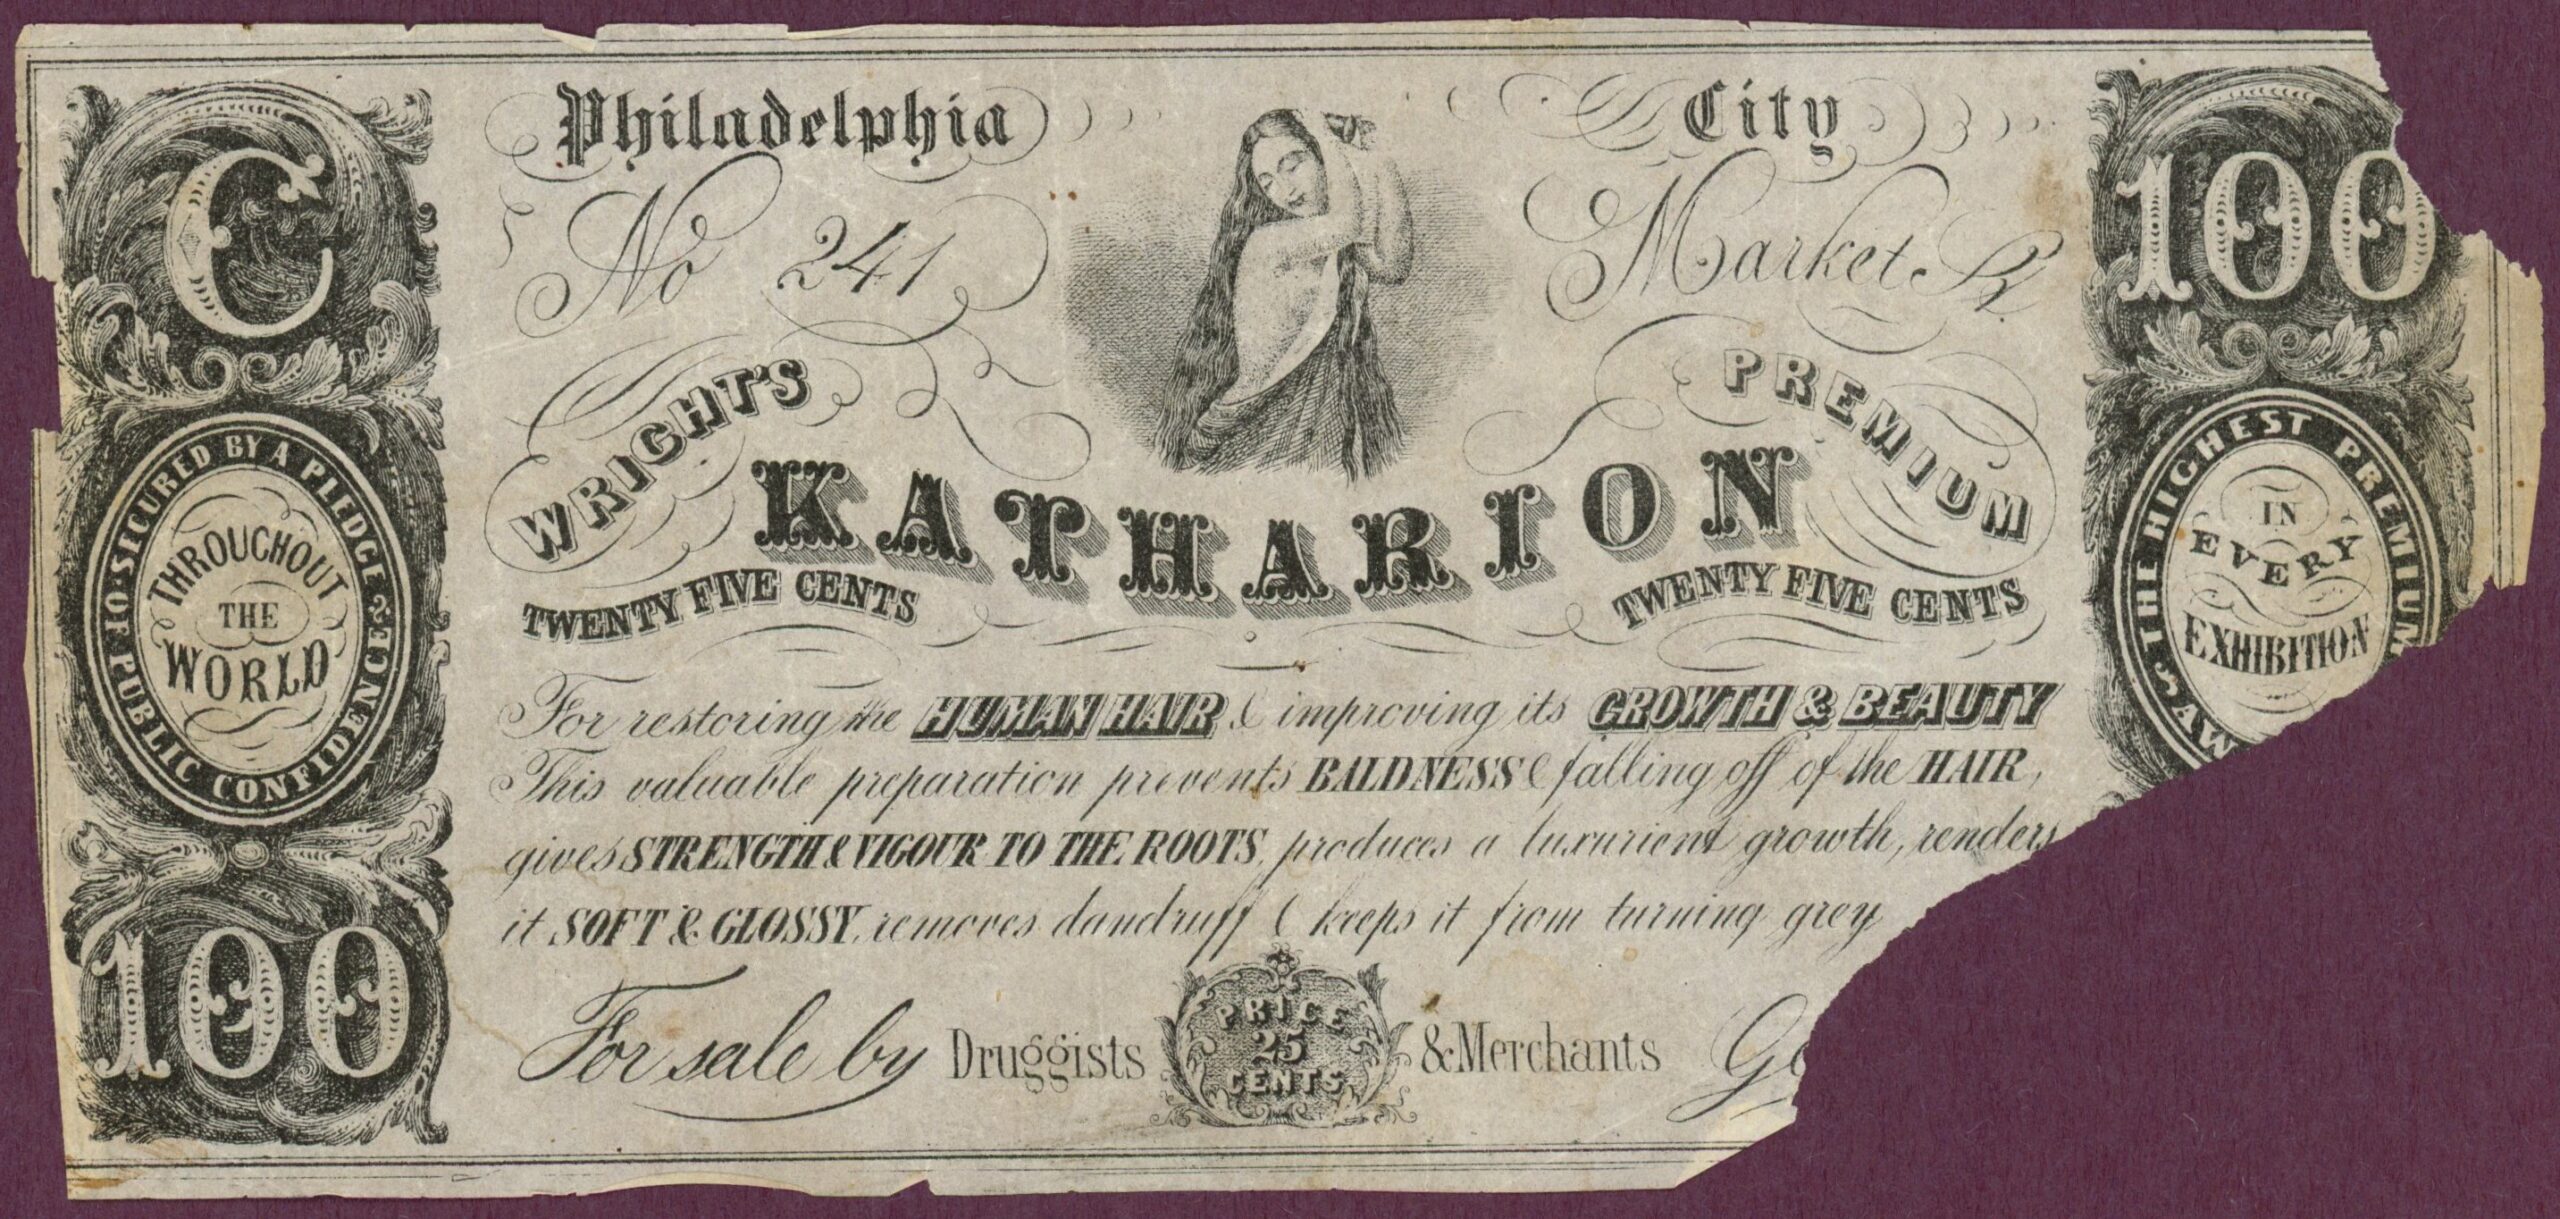 C
Philadelphia City
100
No 241 Market St
WRIGHT'S PREMIUM
KATHARION
TWENTY FIVE CENTS TWENTY FIVE CENTS
SECURED BY A PLEDGE OF PUBLIC CONFIDENCE
THROUGHOUT
THE
WORLD
THE HIGHEST PREMIUM AW
IN
EVERY
EXHIBITION
For restoring the HUMAN HAIR & improving its GROWTH & BEAUTY
This valuable preparation prevents BALDNESS & falling off of the HAIR,
gives STRENGTH & VIGOUR TO THE ROOTS, produces a luxurient growth, renders
it SOFT & GLOSSY, removes dandruff & keeps it from turning grey
100
For sale by Druggists & Merchants
PRICE
25
CENTS